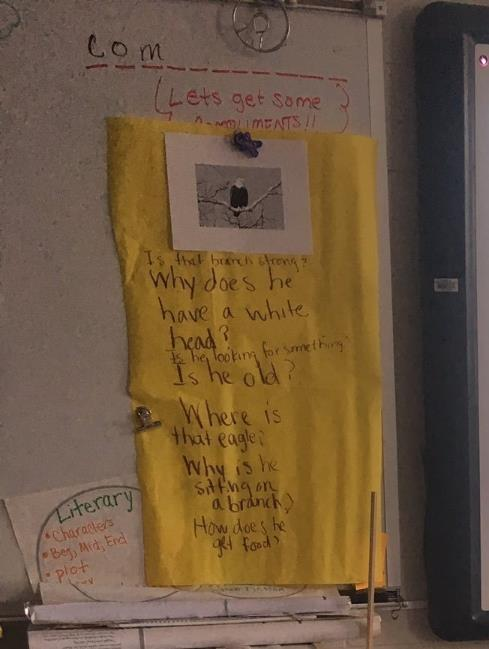 Com
Lets get some
COMPLIMENTS!!
Is that branch strong?
Why does he
have a white
head?
Is he looking for something?
Is he old?
Where is
that eagle?
Why is he
sitting on
a branch?
How does he
get food?
Literary
• Characters
• Beg, Mid, End
• plot